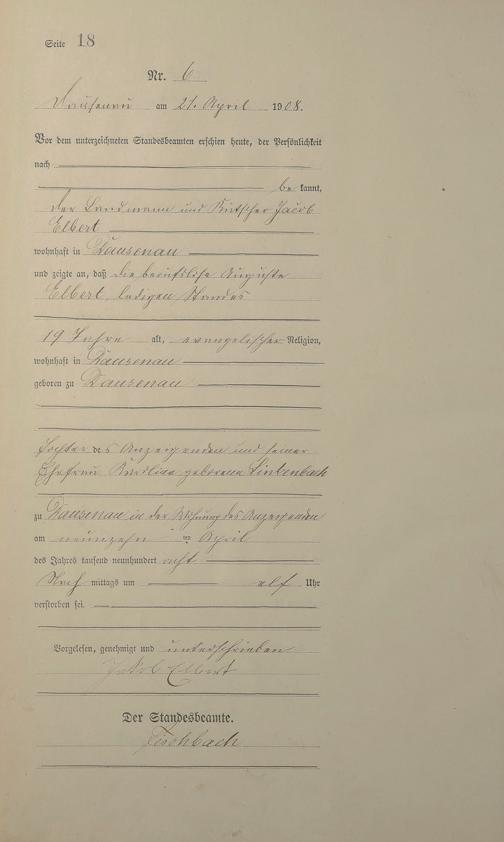 Seite 18
Nr. 6
Dausenau am 21. April 1908.
Vor dem unterzeichneten Standesbeamten erschien heute, der Persönlichkeit
nach
be kannt,
der Landmann und Kutscher Jacob
Elbert
wohnhaft in Dausenau
und zeigte an, daß die berufslose Auguste
Elbert, ledigen Standes
19 Jahre alt, evangelischer Religion,
wohnhaft in Dausenau
geboren zu Dausenau
Tochter des Anzeigenden und seiner
Ehefrau geborene Linkenbach
zu Dausenau in der Wohnung des Anzeigenden
am neunzehnten April
des Jahres tausend neunhundert acht
Nach mittags um elf Uhr
verstorben sei.
Vorgelesen, genehmigt und unterschrieben
Jakob Elbert
Der Standesbeamte.
Fischbach